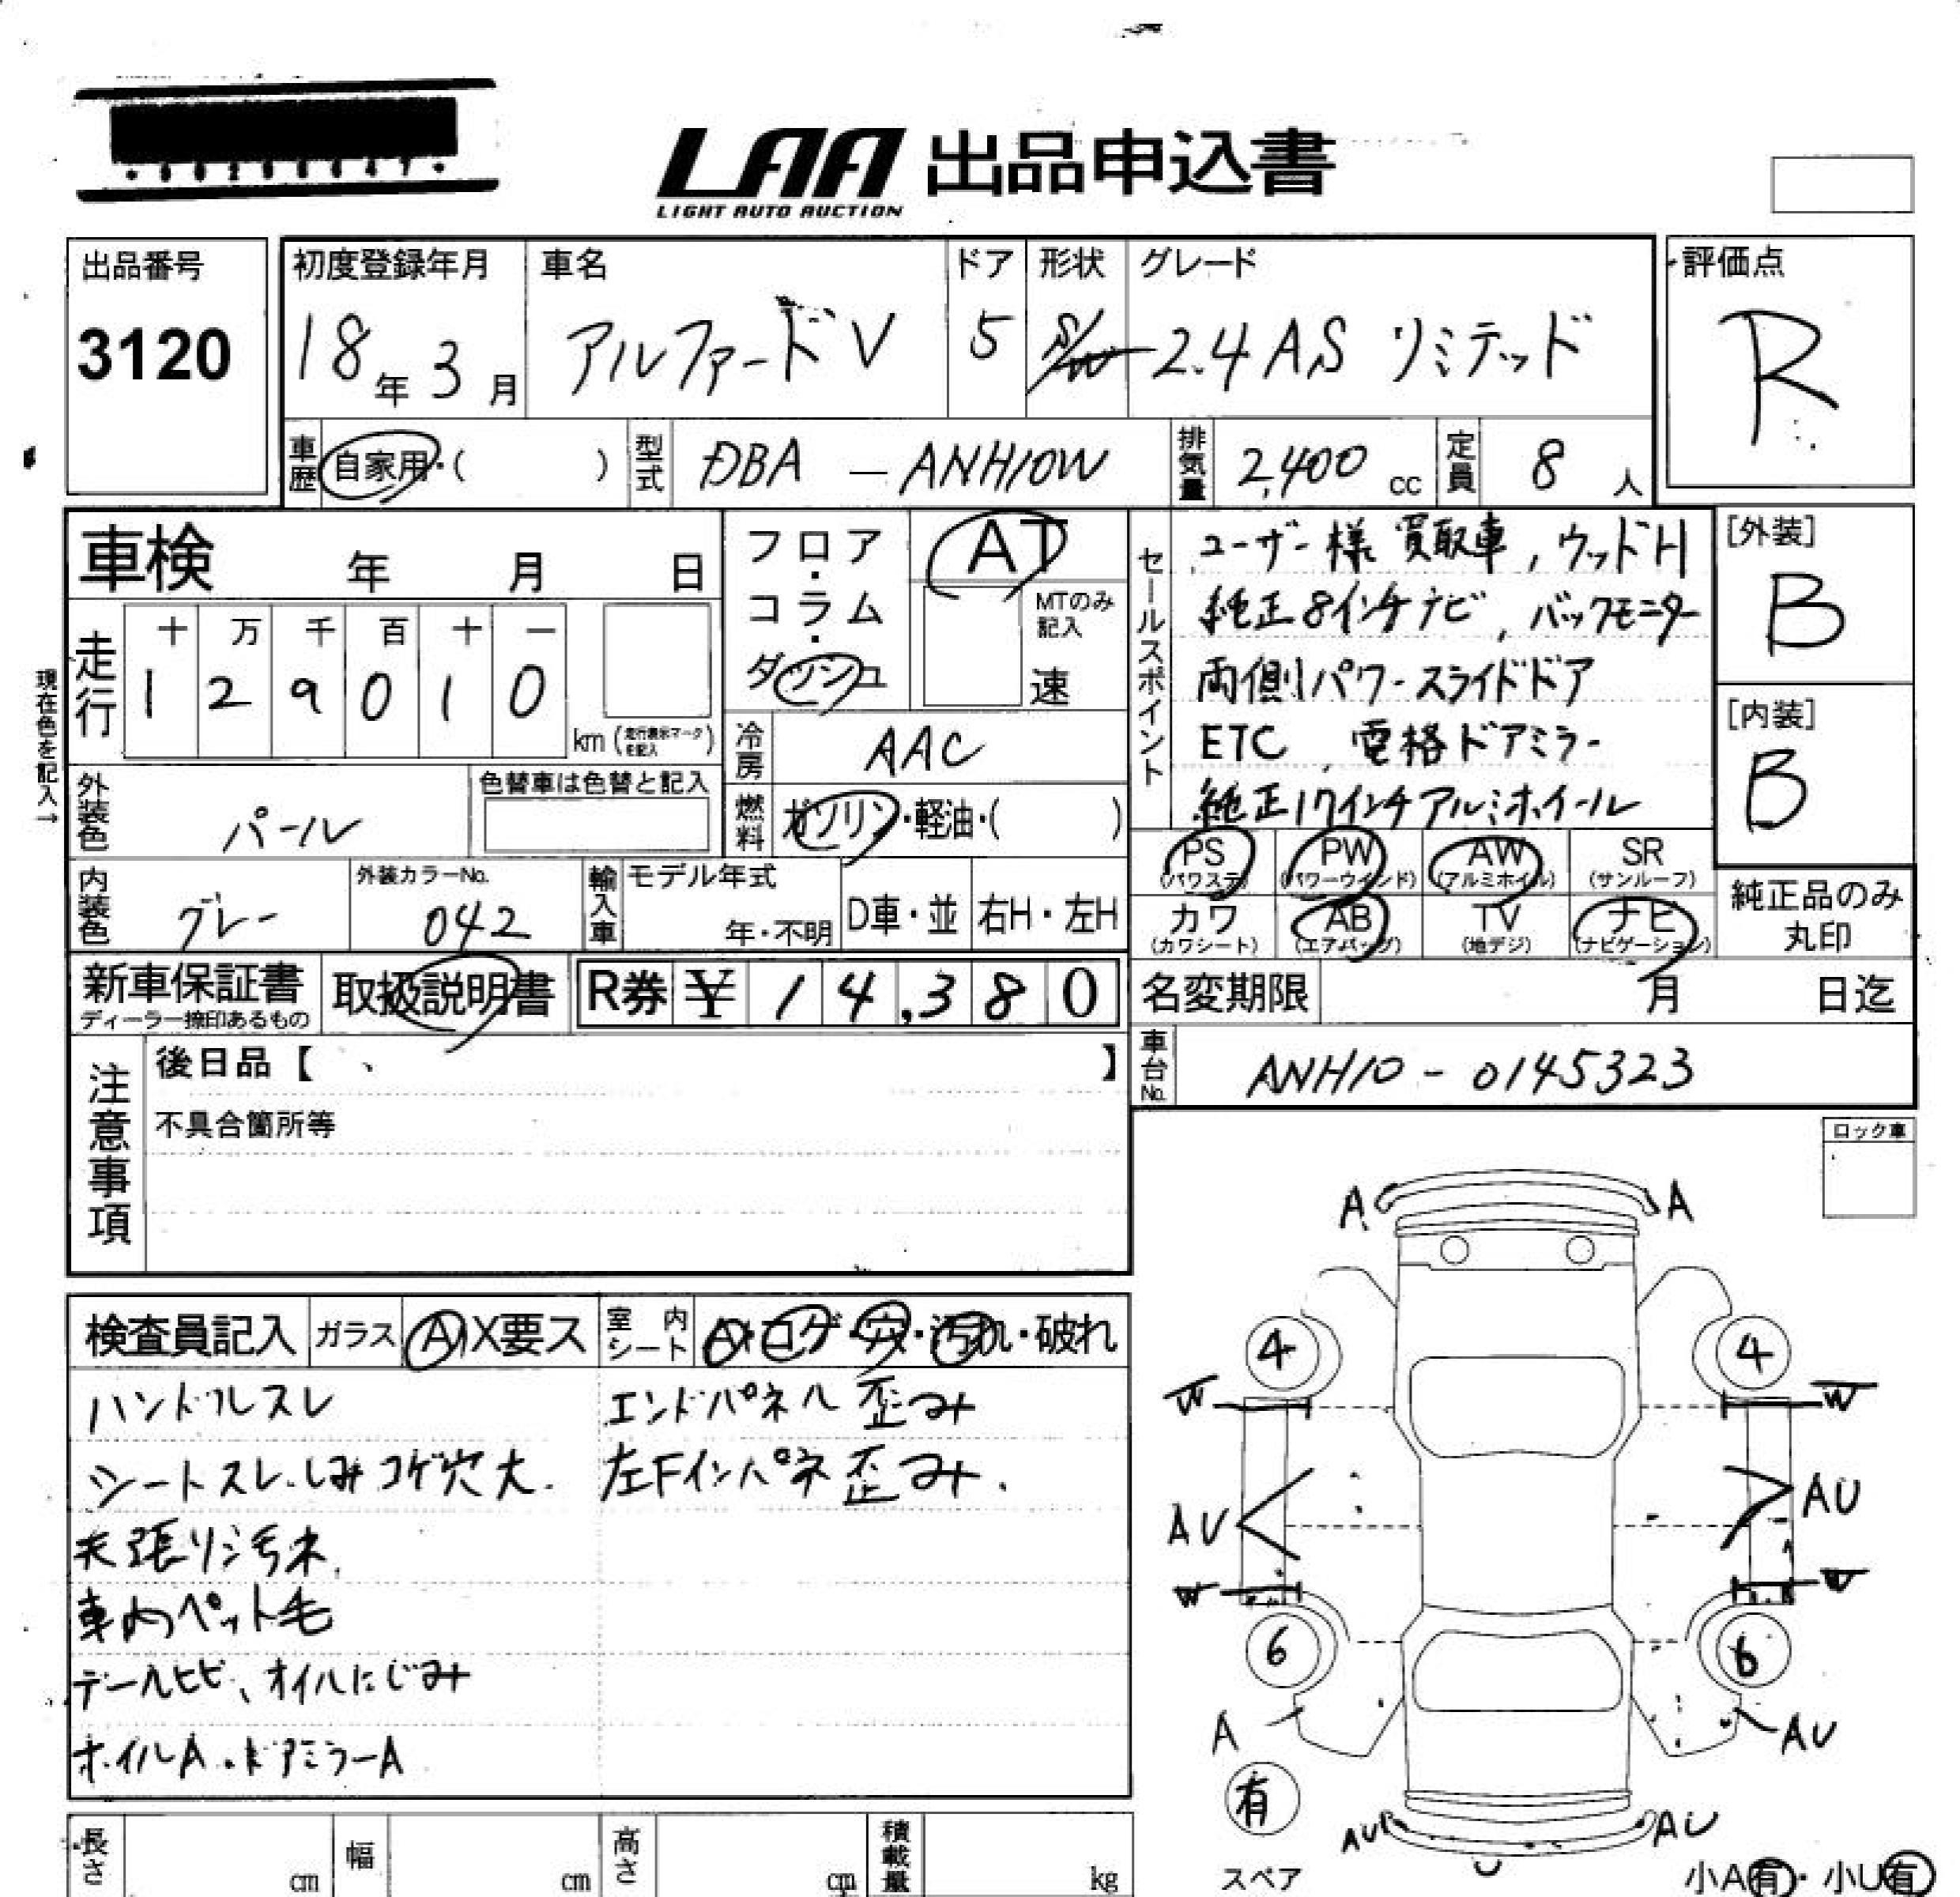 LAA 出品申込書
LIGHT AUTO AUCTION
出品番号
3120
初度登録年月
18年3月
車名
アルファードV
ドア
5
形状
S/W
グレード
2.4 AS リミテッド
評価点
R
車歴 自家用・( )
型式 DBA — ANH10W
排気量 2,400 cc
定員 8 人
車検 年 月 日
フロア・コラム・ダッシュ
AT
MTのみ記入
速
セールスポイント
ユーザー様 買取車, ウッドH
純正8インチナビ, バックモニター
両側パワースライドドア
ETC, 電格ドアミラー
純正17インチアルミホイール
[外装]
B
[内装]
B
走行
十 万 千 百 十 一
1 2 9 0 1 0
km (走行表示マークを記入)
現在色を記入→
冷房 AAC
外装色 パール
色替車は色替と記入
燃料 ガソリン・軽油・( )
内装色 グレー
外装カラーNo.
042
輸入車 モデル年式
年・不明
D車・並
右H・左H
PS (パワステ)
PW (パワーウインド)
AW (アルミホイル)
SR (サンルーフ)
カワ (カワシート)
AB (エアバッグ)
TV (地デジ)
ナビ (ナビゲーション)
純正品のみ丸印
新車保証書
ディーラー捺印あるもの
取扱説明書
R券 ¥ 14,380
名変期限 月 日迄
車台No. ANH10 - 0145323
注意事項
後日品【 、 】
不具合箇所等
ロック車
検査員記入
ガラス A・X要ス
室内シート A・コゲ・穴・汚れ・破れ
ハンドルスレ
エンドパネル歪み
シートスレ、しみ コゲ穴大.
左Fインパネ歪み.
天張り汚れ
車内ペット毛
テールヒビ、オイルにじみ
ホイルA.ドアミラーA
A A
4 4
W W
AU AU
W W
6 6
A AU
有
スペア
AU AU
U
小A有・小U有
長さ cm
幅 cm
高さ cm
積載量 kg